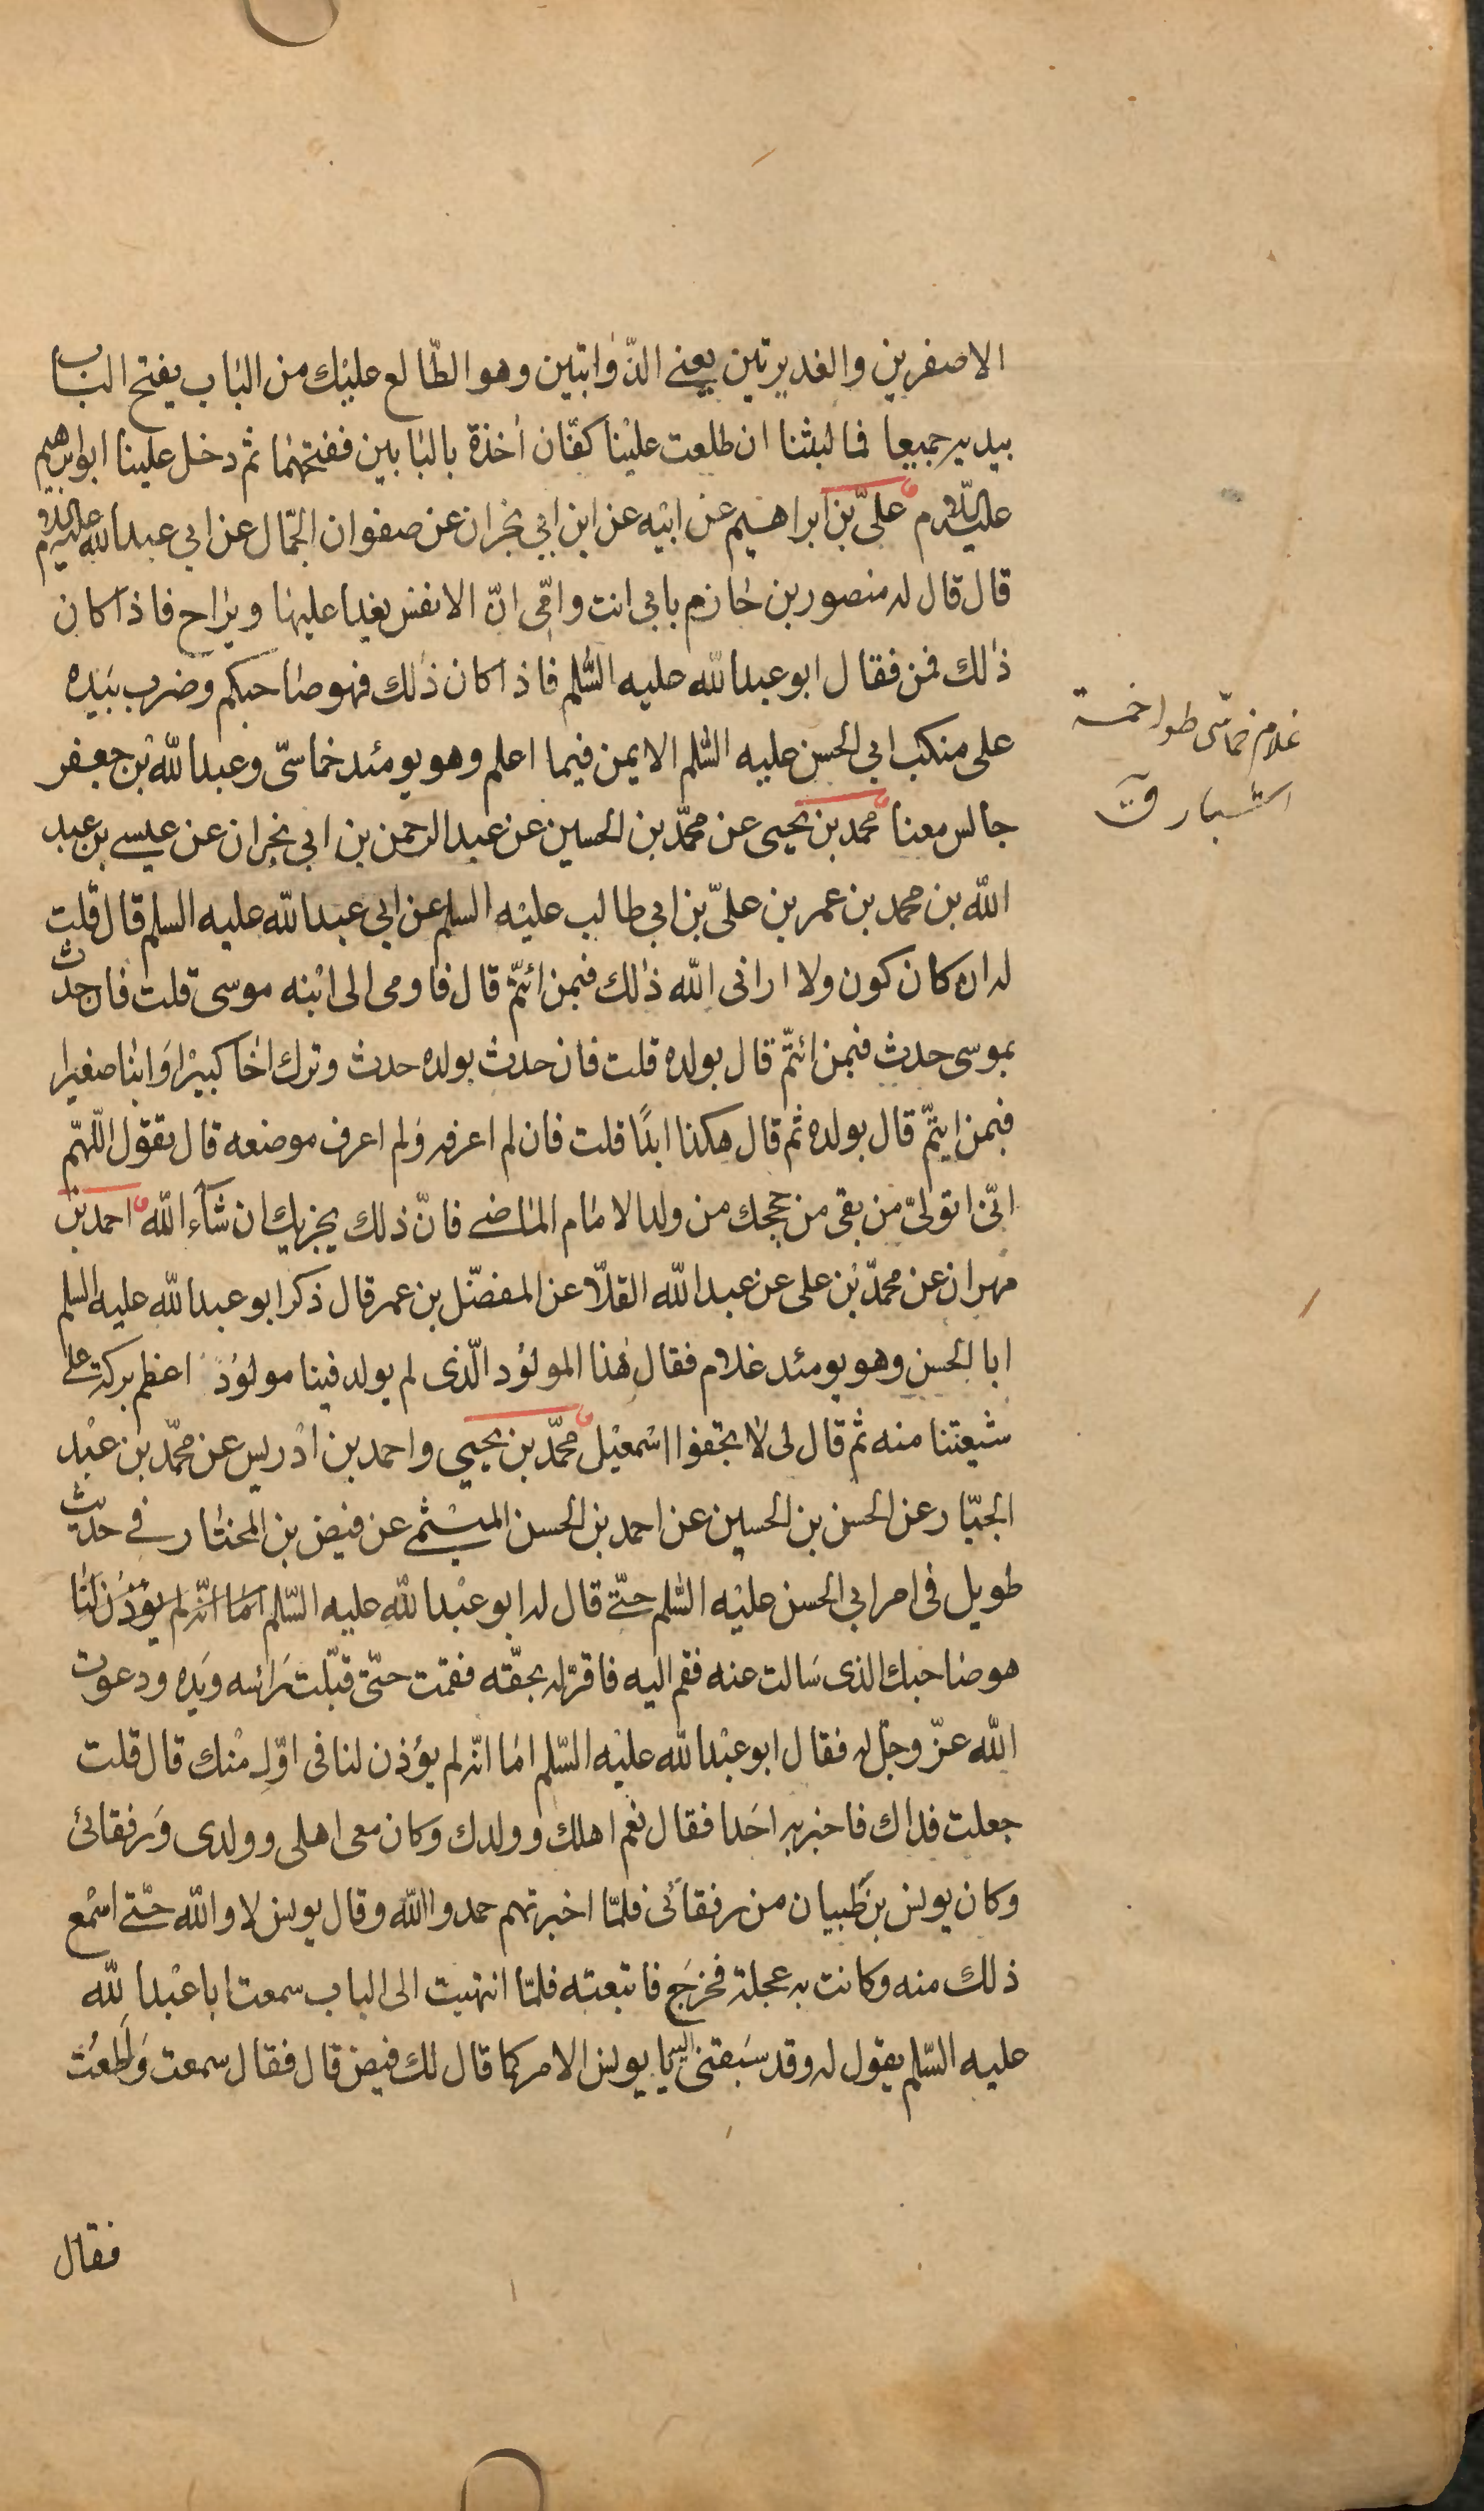 الاصفرين والغديرتين يعنى الذّوابتين وهو الطّالع عليك من الباب يفتح الباب
بيديه جميعا فما لبثنا ان طلعت علينا كفّان أخذة بالبابين ففتحهما ثم دخل علينا ابوابرهيم
عليه السّلام علىّ بن ابراهيم عن ابيه عن ابن ابى نجران عن صفوان الجمّال عن ابى عبدالله عليه السلام
قال قال له منصور بن حازم بابى انت وامّى انّ الانفس يغدا عليها ويراح فاذا كان
ذلك فمن فقال ابو عبدالله عليه السّلم فاذا كان ذلك فهو صاحبكم وضرب بيده
على منكب ابى الحسن عليه السّلم الايمن فيما اعلم وهو يومئد خماسىّ وعبدالله بن جعفر
غلام خماسّى طوله خمسة
اشبار ق
جالس معنا محمد بن يحيى عن محمّد بن الحسين عن عبدالرحمن بن ابى نجران عن عيسى بن عبد
الله بن محمد بن عمر بن علىّ بن ابى طالب عليه السلم عن ابى عبدالله عليه السلم قال قلت
له ان كان كون ولا ارانى الله ذلك فبمن ائتمّ قال فاومى الى ابنه موسى قلت فان حدث
بموسى حدث فبمن ائتمّ قال بولده قلت فان حدث بولده حدث وترك اخا كبيرا وابنا صغيرا
فبمن ايتمّ قال بولده ثم قال هكذا ابدًا قلت فان لم اعرفه ولم اعرف موضعه قال تقول اللّهمّ
انّى اتولىّ من بقى من حججك من ولد الامام الماضى فانّ ذلك يجزيك ان شآء الله احمد بن
مهران عن محمّد بن على عن عبدالله القلّا عن المفضّل بن عمر قال ذكر ابو عبدالله عليه السلم
ابا الحسن وهو يومئد غلام فقال هذا المولود الّذى لم يولد فينا مولود اعظم بركة على
شيعتنا منه ثم قال لى لا تجفوا اسمعيل محمّد بن يحيى واحمد بن ادريس عن محمّد بن عبد
الجبّار عن الحسن بن الحسين عن احمد بن الحسن الميثمى عن فيض بن المختار فى حديث
طويل فى امر ابى الحسن عليه السّلم حتّى قال له ابو عبدالله عليه السّلم اما انّه لم يؤذن لنا
هو صاحبك الذى سالت عنه فقم اليه فاقرّ له بحقّه فقمت حتّى قبّلت رائسه ويده ودعوت
الله عزّ وجلّ له فقال ابو عبدالله عليه السّلم اما انّه لم يؤذن لنا فى اوّل منك قال قلت
جعلت فداك فاخبر به احدا فقال نعم اهلك وولدك وكان معى اهلى وولدى ورفقائى
وكان يونس بن ظبيان من رفقائى فلمّا اخبرتهم حمدوا الله وقال يونس لا والله حتّى اسمع
ذلك منه وكانت به عجلة فخرج فاتبعته فلمّا انتهيت الى الباب سمعت ابا عبدالله
عليه السّلم يقول له وقد سبقنى اليه يا يونس الامر كما قال لك فيض قال فقال سمعت واطعت
فقال